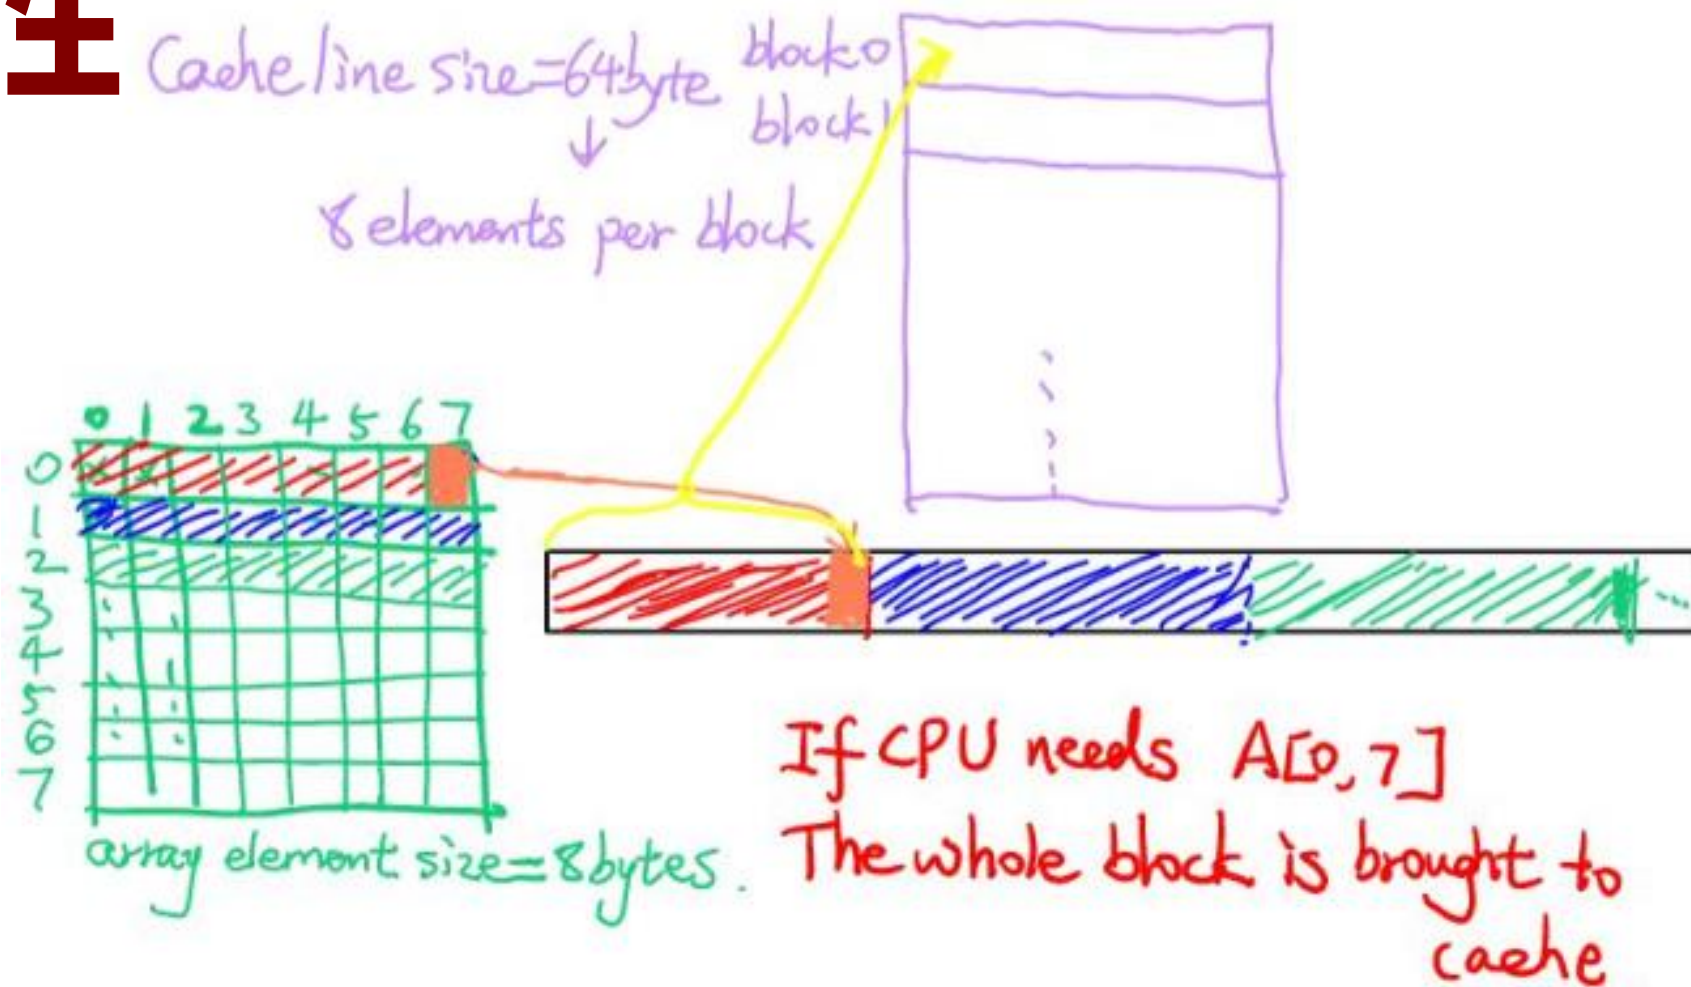 Cache line size=64byte
↓
8 elements per block
block0
block1
0 1 2 3 4 5 6 7
0
1
2
3
4
5
6
7
array element size=8bytes.
If CPU needs A[0,7]
The whole block is brought to
cache